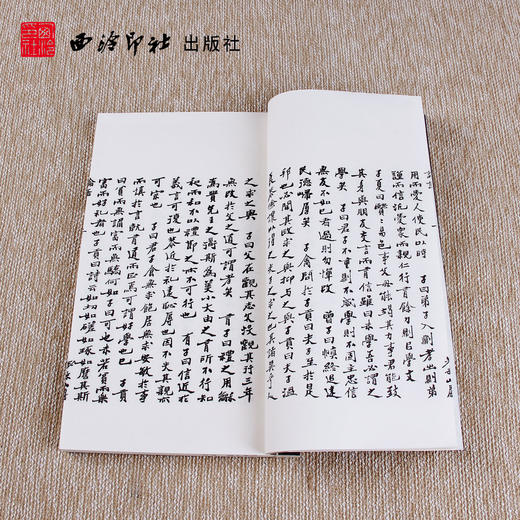 西泠印社 出版社
用而愛人使民以時 子曰弟子入則孝出則弟
謹而信汎愛衆而親仁行有餘力則以學文
子夏曰賢〻易色事父母能竭其力事君能致
其身與朋友交言而有信雖曰未學吾必謂之
學矣 子曰君子不重則不威學則不固主忠信
無友不如己者過則勿憚改 曾子曰慎終追遠
民德歸厚矣 子禽問於子貢曰夫子至於是
邦也必聞其政求之與抑與之與子貢曰夫子溫
良恭儉讓以得之夫子之求之也其諸異乎人
之求之與 子曰父在觀其志父沒觀其行三年
無改於父之道可謂孝矣 有子曰禮之用龢
爲貴先王之道斯爲美小大由之有所不行知
和而和不以禮節之亦不可行也 有子曰信近於
義言可復也恭近於禮遠恥辱也因不失其親亦
可宗也 子曰君子食無求飽居無求安敏於事
而慎於言就有道而正焉可謂好學也已 子貢
曰貧而無諂富而無驕何如子曰可也未若貧而樂
富而好禮者也子貢曰詩云如切如磋如琢如磨其斯